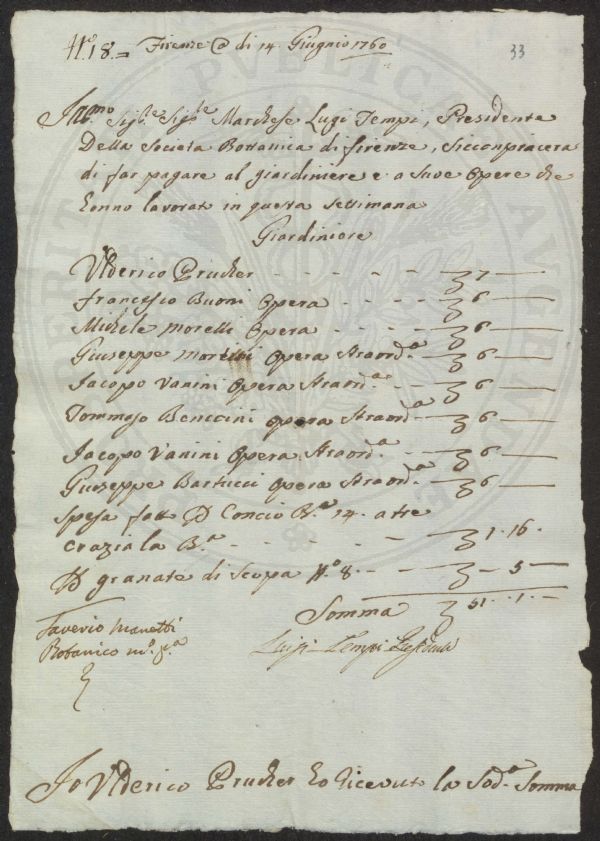 N.º 18.= Firenze @ di 14. Giugnio 1760
33
Ill.mo Sig.re Sig.re Marchese Luigi Tempi, Presidente
Della Società Bottanica di firenze, Siccompiacera
di far pagare al giardiniere e a Suoe Opere che
Honno lavorat in questa Settimana
Giardiniere
Vlderico Prucker - - - - 7 —
Francesco Buoni Opera - - - 6 —
Michele Morelli Opera - - - 6 —
Giuseppe Morelli Opera Straord.a - 6 —
Jacopo Vanini Opera Straord.a - 6 —
Tommaso Benccini Opera Straord.a 6 —
Jacopo Vanini Opera Straord.a - - 6 —
Giuseppe Bartucci Opera Straord.a - 6 —
Spesa fatt Concio B.e 14. a tre
Crazia la B.a - - - - 1.16.
granate di Scopa N.º 8. - - - 5 —
Somma 51.1.—
Saverio Manetti
Botanico m.º p.a
Luigi Tempi Presidente
Io Vlderico Prucker ho Riceuuto la Sod.a Somma
PVBLICAE